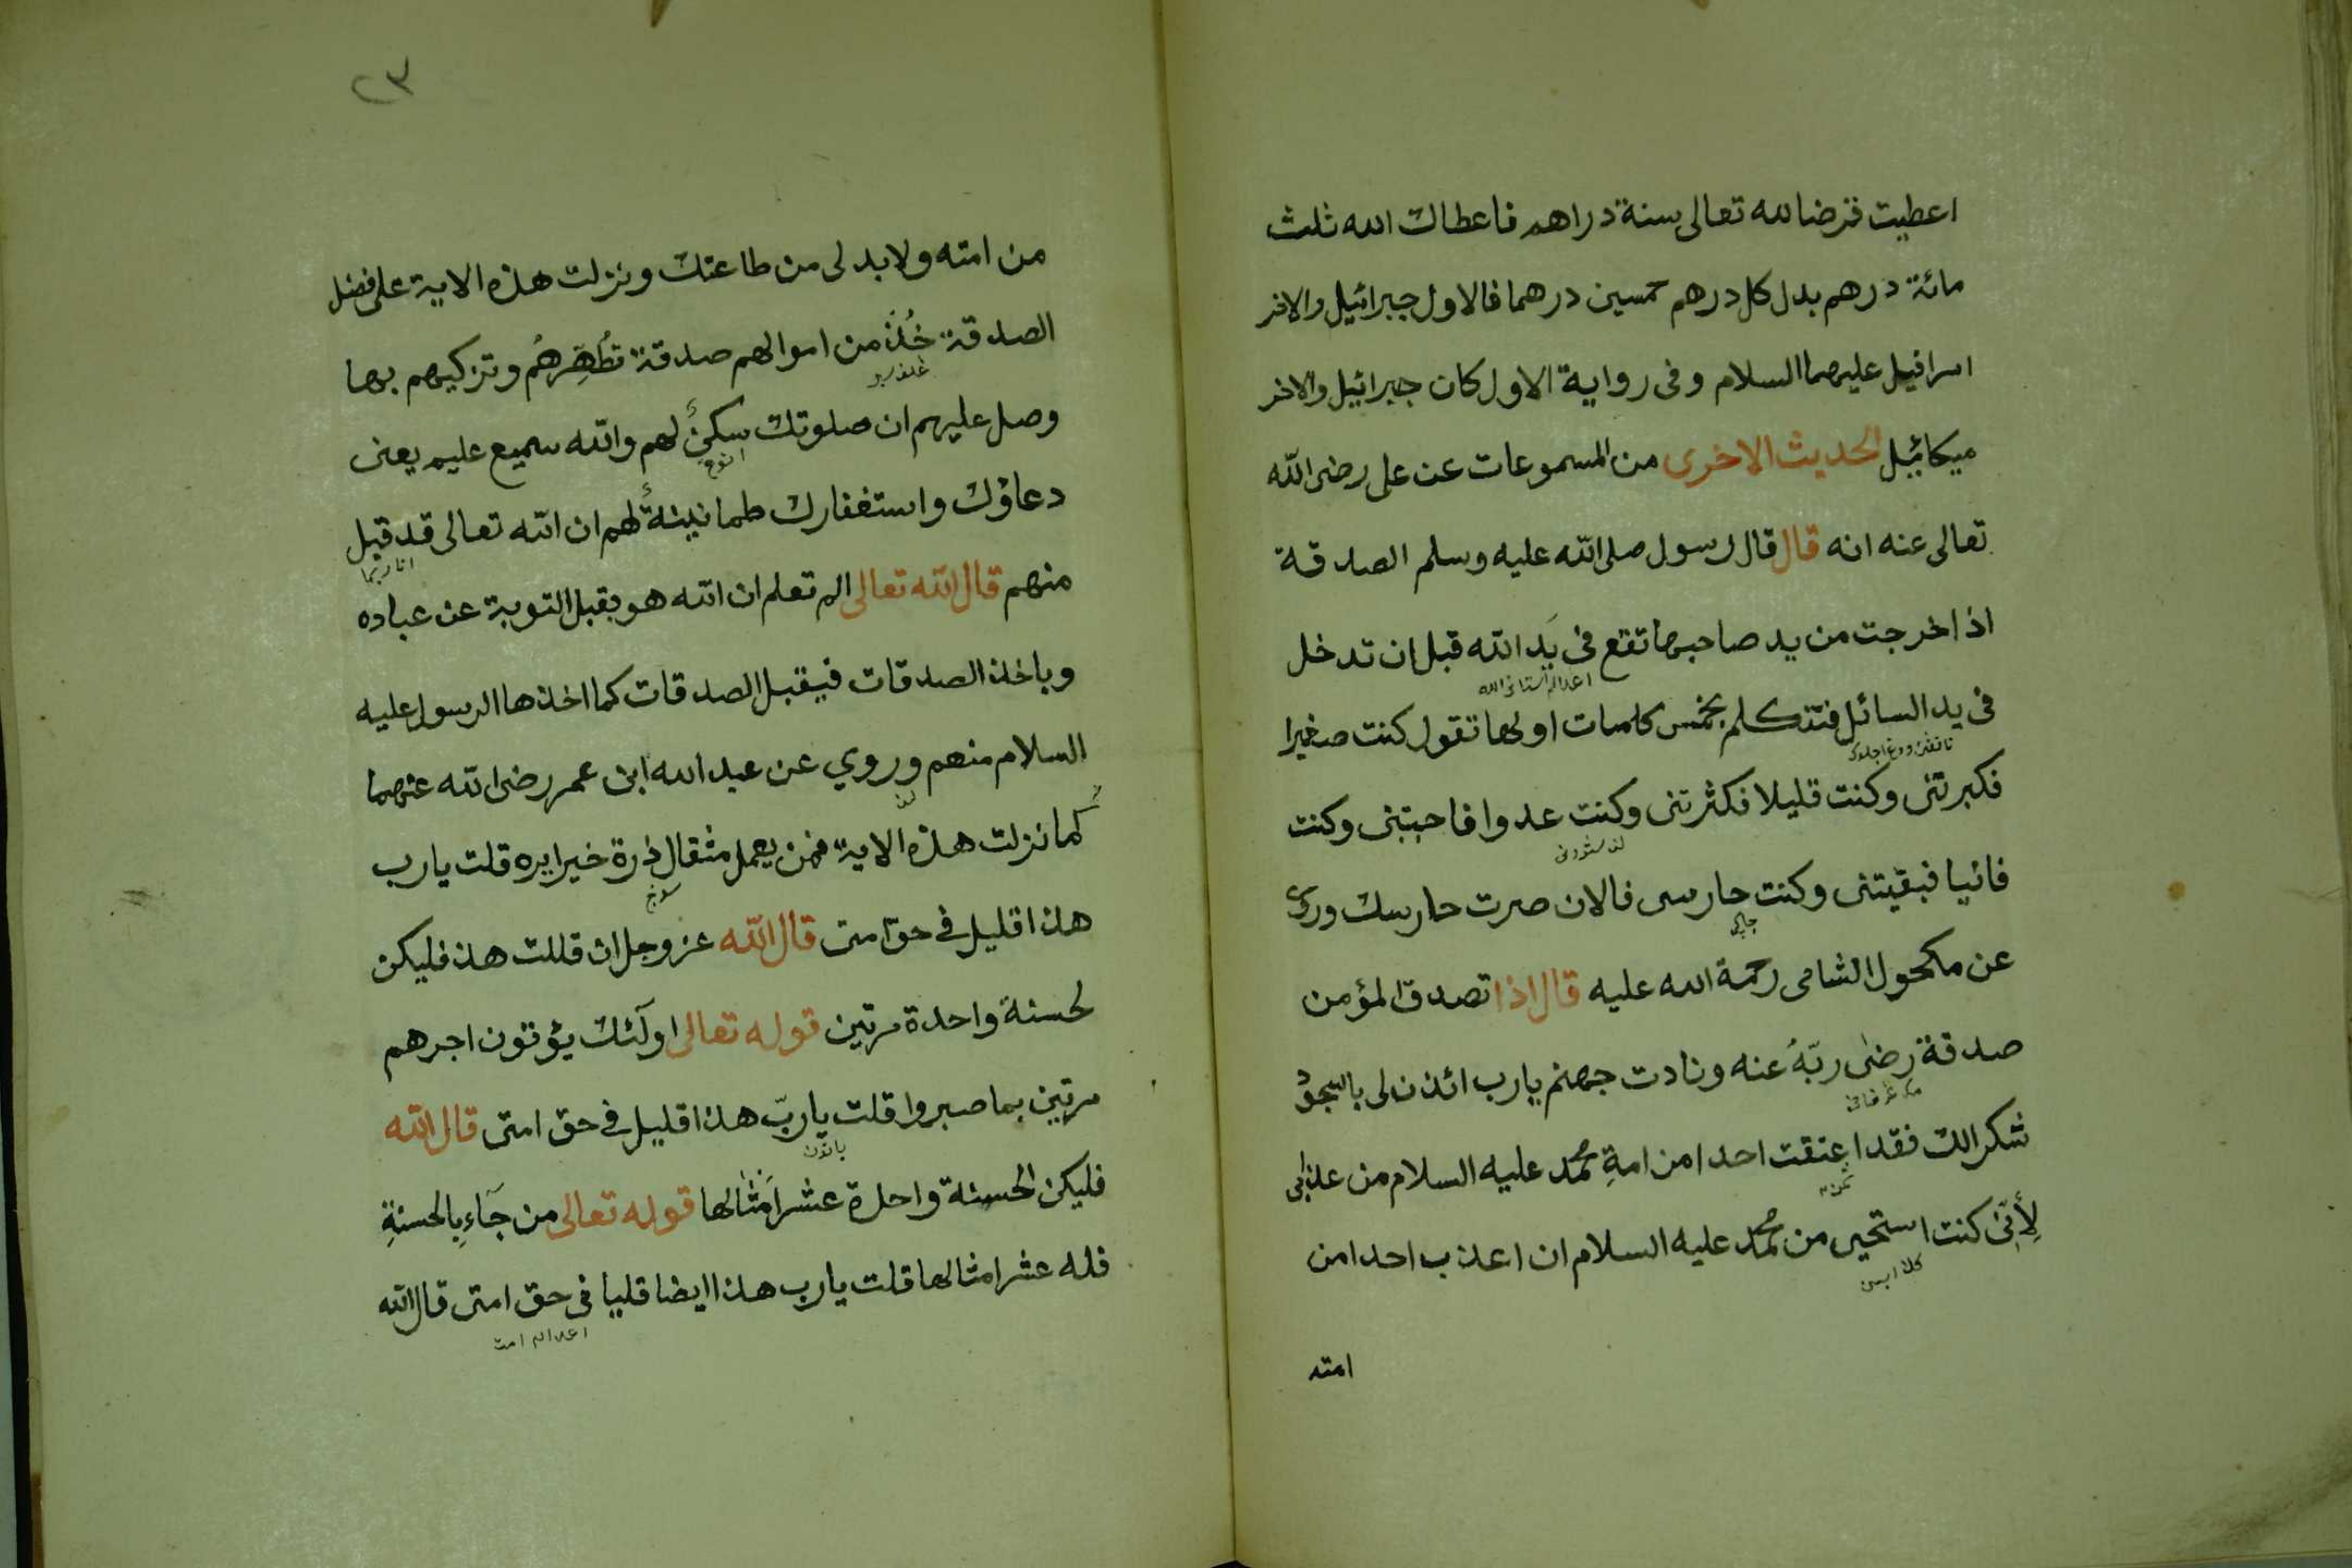 اعطيت قرضا لله تعالى ستة دراهم فاعطاك الله ثلث
مائة درهم بدل كل درهم خمسين درهما فالاول جبرائيل والاخر
اسرافيل عليهما السلام وفى رواية الاول كان جبرائيل والاخر
ميكائيل الحديث الاخرى من المسموعات عن على رضى الله
تعالى عنه انه قال قال رسول صلى الله عليه وسلم الصدقة
اذا خرجت من يد صاحبها تقع فى يَدِ الله قبل ان تدخل
فى يد السائل فتتكلم بخمس كلمات اولها تقول كنت صغيرا
فكبرتنى وكنت قليلا فكثرتنى وكنت عدوا فاحببتنى وكنت
فانيا فبقيتنى وكنت حارسى فالان صرت حارسك وروى
عن مكحول الشامى رحمة الله عليه قال اذا تصدق المؤمن
صدقة رضى ربّهُ عنه ونادت جهنم يارب ائذن لى بالسجود
شكرا لك فقد اعتقت احدا من امةِ محمد عليه السلام من عذابى
لِأَنِّى كنت استحيى من محمد عليه السلام ان اعذب احدا من
امته
٢٣
من امته ولا بد لى من طاعتك ونزلت هذه الاية على فضل
الصدقة خُذْ من اموالهم صدقة تُطَهِّرهُم وتزكيهم بها
وصل عليهم ان صلوتك سكنٌ لهم والله سميع عليم يعنى
دعاؤك واستغفارك طمانينةٌ لهم ان الله تعالى قد قبل
منهم قال الله تعالى الم تعلم ان الله هو يقبل التوبة عن عباده
وياخذ الصدقات فيقبل الصدقات كما اخذها الرسول عليه
السلام منهم وروي عن عبد الله ابن عمر رضى الله عنهما
كما نزلت هذه الاية فمن يعمل مثقال ذرة خيرا يره قلت يارب
هذا قليل فى حق امتى قال الله عز وجل ان قللت هذ فليكن
لحسنة واحدة مرتين قوله تعالى اولٓئك يؤتون اجرهم
مرتين بما صبروا قلت ياربّ هذا قليل فى حق امتى قال الله
فليكن الحسنة واحدة عشر اَمْثالها قوله تعالى من جَآءِ بالحسنةِ
فله عشر امثالها قلت يارب هذا ايضا قليا فى حق امتى قال الله